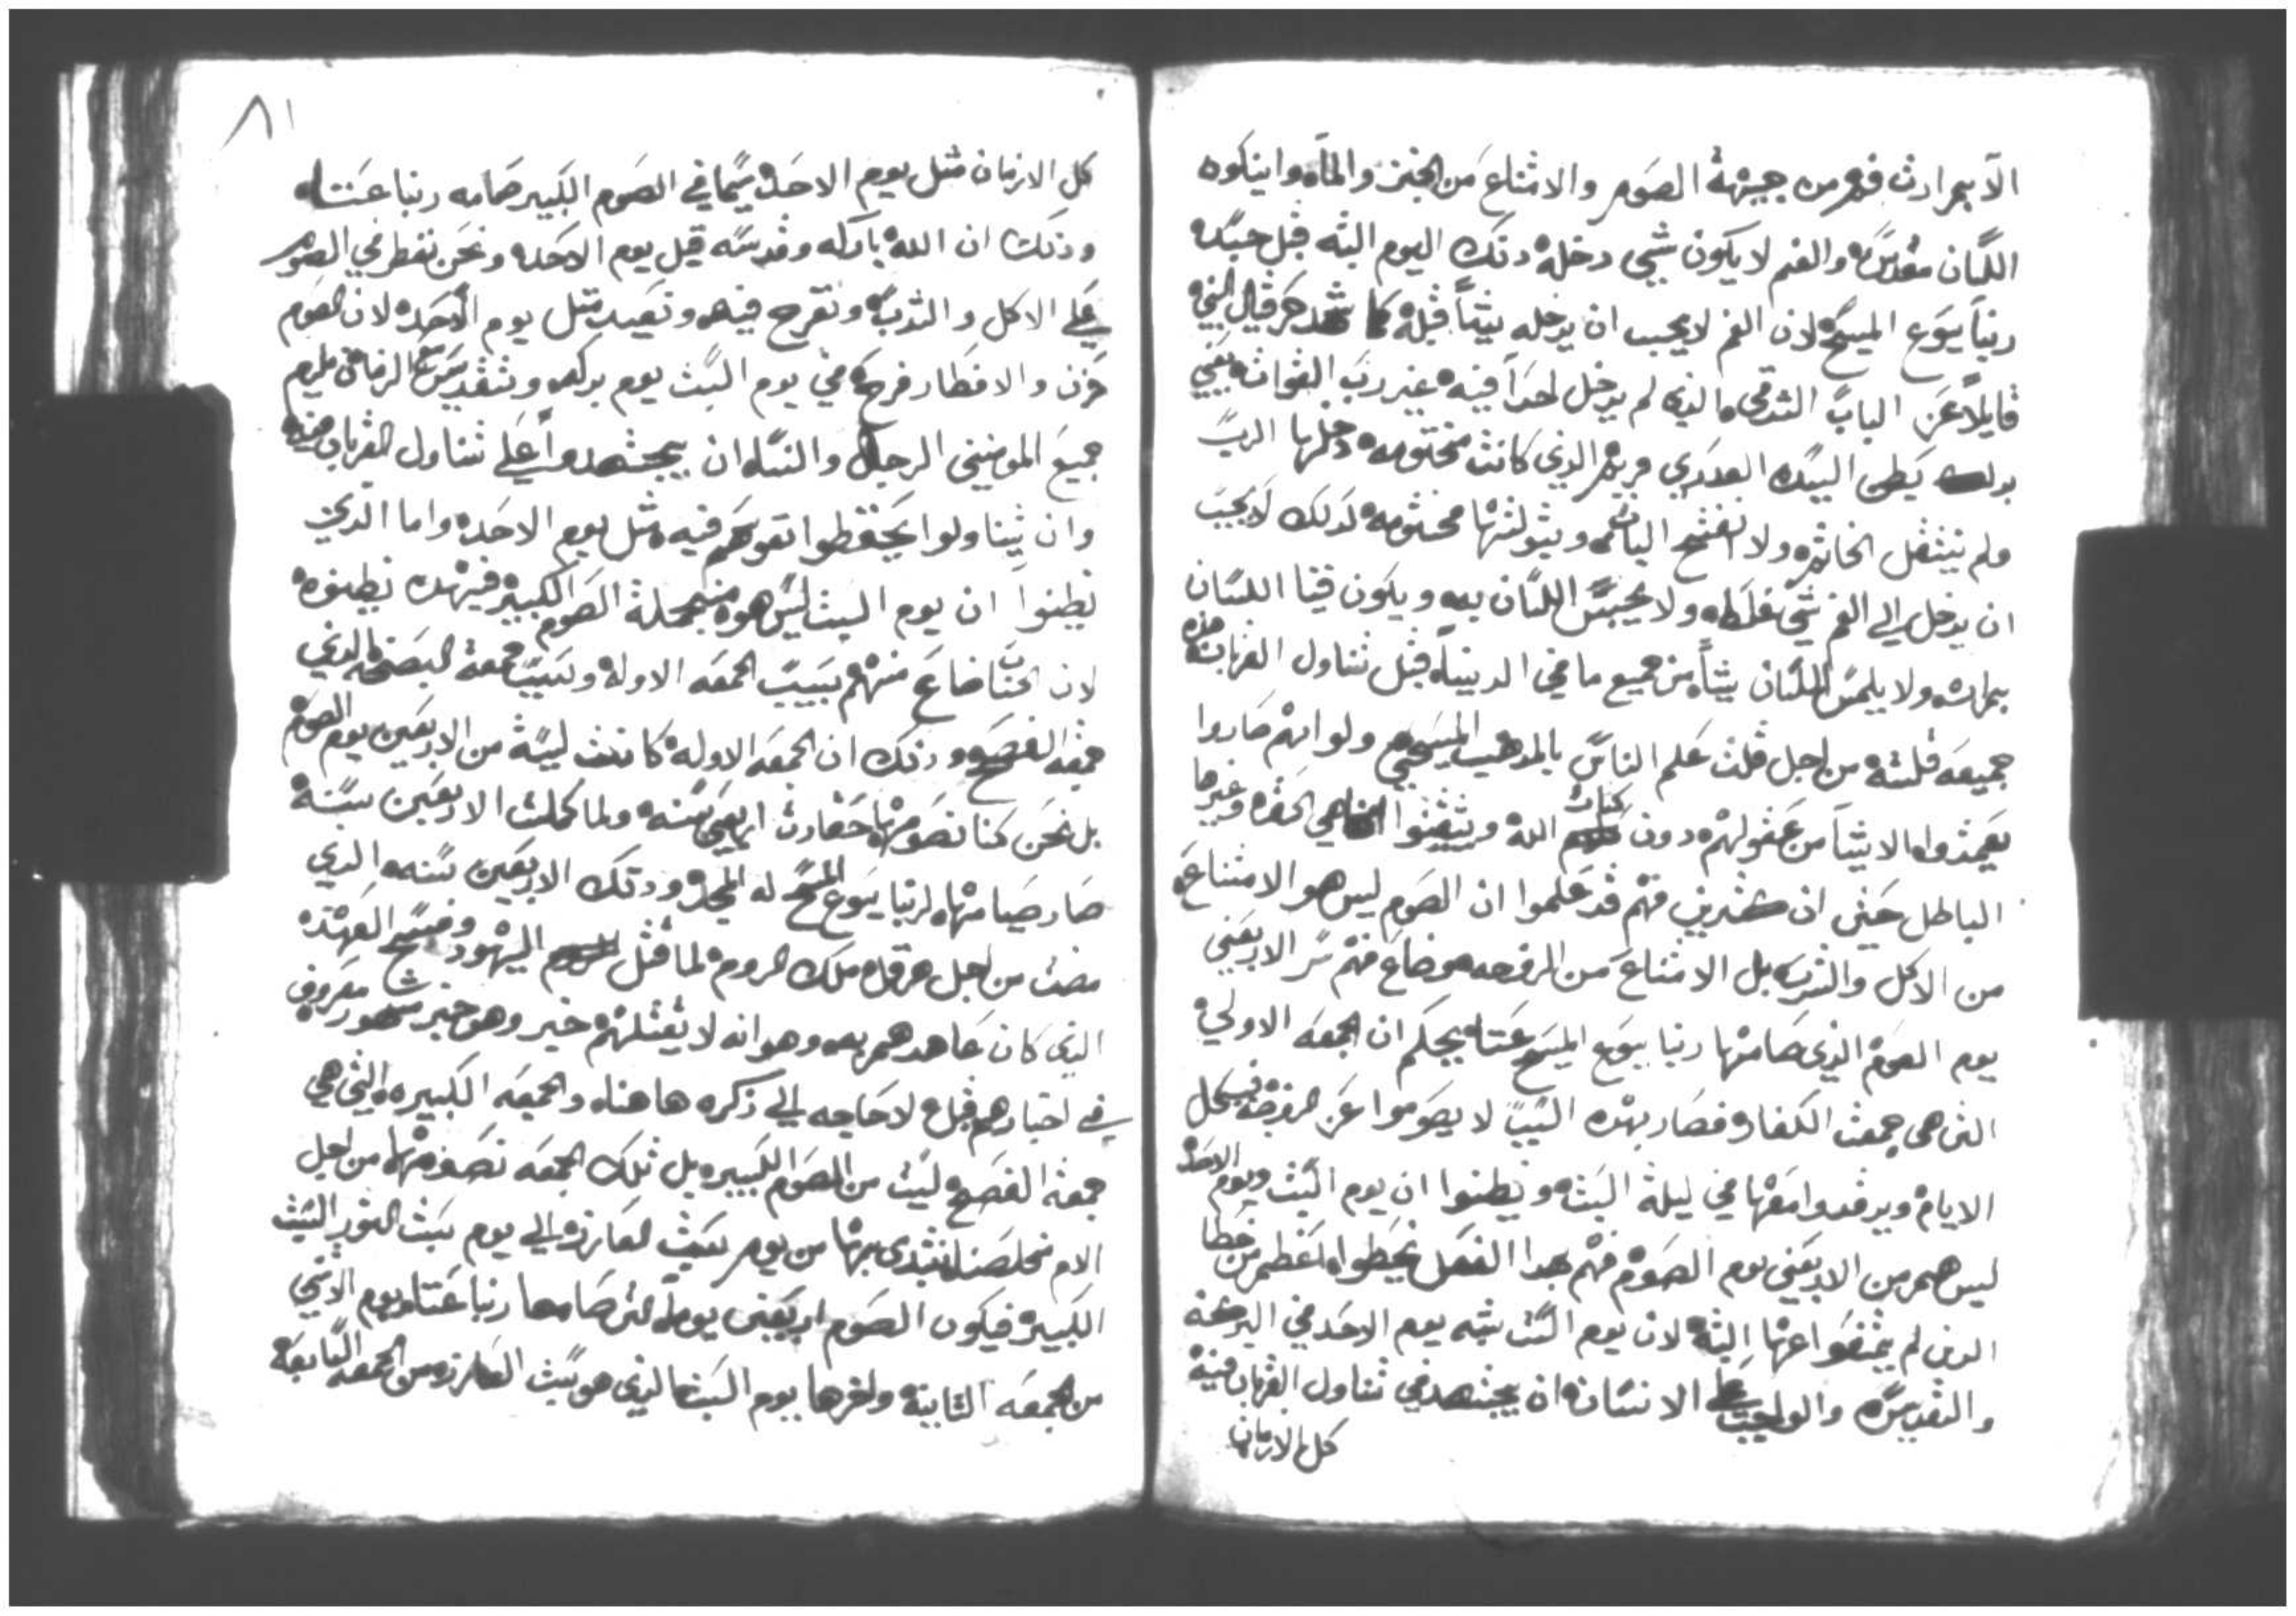 الا بمرادث فهم من جهة الصوم والامتناع من الخبز والماء واينكون
اللسان مقدسه والفم لا يكون شي دخله دتك اليوم البته قبل جسد
ربنا يسوع المسيح لان الفم لا يجب ان يدخله شيا قبله كما شهد حزقيال النبي
قايلا عن الباب الشرقي الذي لم يدخل احدا فيه غير رب القوات يعني
بدلك بطن السيده العدري مريم الذي كانت مختومه دخلها الرب
ولم ينتقل الخاتم ولا انفتح الباب وبتولتها مختومه لدلك لا يجب
ان يدخل الي الفم شي غلطه ولا يحبس اللسان به ويكون فينا اللسان
بمراث ولا يلمس اللسان شيا من جميع ما في الدنيا قبل تناول القربان هذه
جميعه قلته من اجل قلت علم الناس بالمدهب المسيحي ولو انهم صاروا
يعمدوا الا شيا من عقولهم دون كتاب الله ويتبعوا الحنفه وغيرها
الباطل حتى ان كثيرين منهم قد علموا ان الصوم ليس هو الامتناع
من الاكل والشرب بل الامتناع من الزفر ضاع منهم سر الاربعين
يوم الصوم الذي صامها ربنا يسوع المسيح عنا بحكم ان الجمعه الاولي
التي هي جمعت الكفاره فصار بهده السبب لا يصوموا عن الزفر في كل
الايام ويرفدوا معها في ليلة السبت ويظنوا ان يوم السبت ويوم الاحد
ليس هم من الاربعين يوم الصوم فهم بهدا الفعل يخطوا اعظم من خطا
الدين لم يمتنعوا عنها البته لان يوم السبت شبه يوم الاحد في البركه
والتقديس والواجب علي الانسان ان يجتهد في تناول القربان فيه
كل الازمان
٨١
كل الازمان مثل يوم الاحد سيما في الصوم الكبير صامه ربنا عنا
ودلك ان الله باركه وقدسه قبل يوم الاحد ونحن نفطر في الصوم
علي الاكل والشرب ونفرح فيه ونعيد مثل يوم الاحد لان الصوم
حزن والافطار فرح في يوم السبت يوم بركه وتقديس
جميع المومنين الرجال والنسا ان يجتهدوا علي تناول القربان فيه
وان يتناولوا يحتفظوا نفوسهم فيه مثل يوم الاحد واما الدين
يظنوا ان يوم السبت ليس هو من جملة الصوم الكبير فبهده يظنوه
لان الحساب ضاع منهم بسبب الجمعه الاوله وبسبب جمعة البصخه الدي
جمعة الفصح ودلك ان الجمعه الاوله كانت ليسة من الاربعين يوم الصوم
بل نحن كنا نصومها حتى صارت اربعين سنه ولما كملت الاربعين سنة
صار صيامها لربنا يسوع المسيح له المجد ودتك الاربعين سنه الدي
مضت من اجل هرقل ملك الروم لما قتل اليهود وفسح العهده
الدي كان عاهدهم به وهو انه لا يقتلهم خير وهو خبر مشهور معروف
في اخبارهم قبل لا حاجه الي ذكره هاهنا والجمعه الكبيره التي هي
جمعة الفصح ليست من الصوم الكبير بل تلك الجمعه نصومها من اجل
الام مخلصنا نبتدي بها من يوم سبت لعازر الي يوم سبت النور السبت
الكبير فيكون الصوم اربعين يوما التى صامها ربنا عنا ويوم الاثنين
من الجمعه الثانيه واخرها يوم السبت الذي هو سبت العازر من الجمعه السابعه